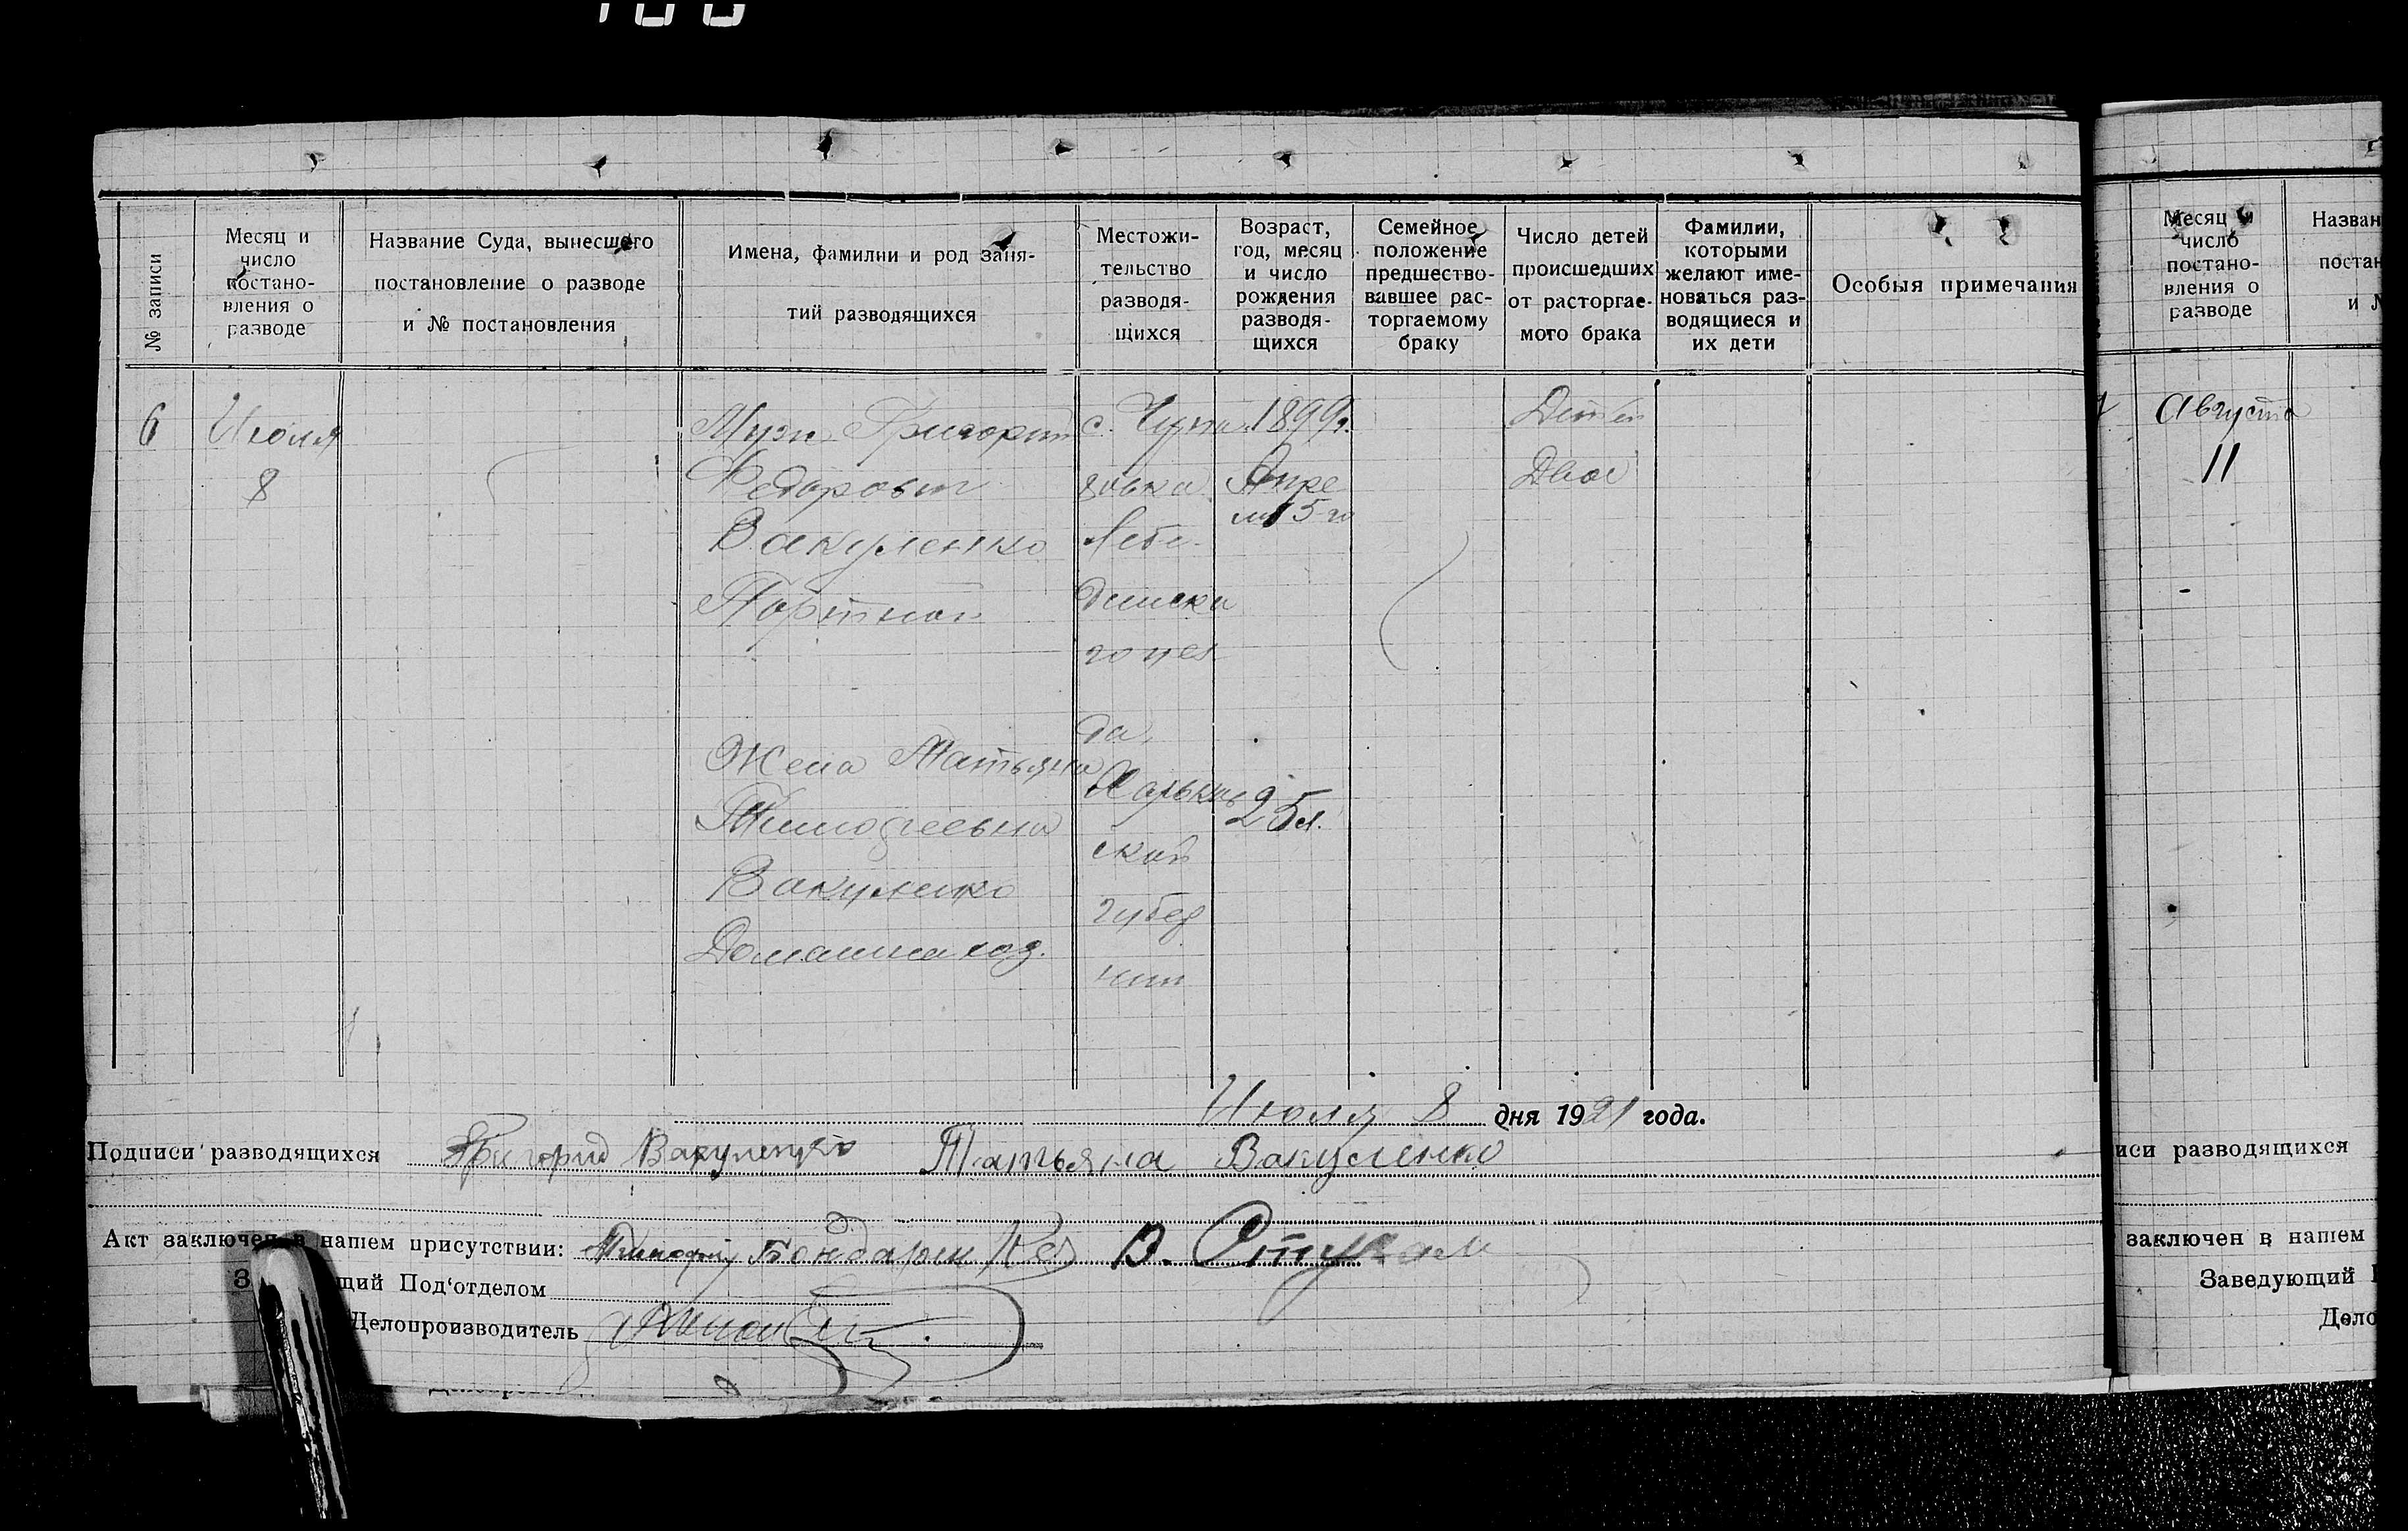 № записи
Месяц и число постано- вления о разводе
Название Суда, вынесшего постановление о разводе и № постановления
Имена, фамилии и род заня- тий разводящихся
Местожи- тельство разводя- щихся
Возраст, год, месяц и число рождения разводя- щихся
Семейное положение предшество- вавшее рас- торгаемому браку
Число детей происшедших от расторгае- мого брака
Фамилии, которыми желают име- новаться раз- водящиеся и их дети
Особыя примечания
6
Июля
8
Муж Григорий
Федорович
Вакуленко
Портной
Жена Татьяна
Тимофеевна
Вакуленко
Домашна хоз.
с.
зовка
Лебе-
динска
го уез
да,
Харьков
ской
губер
нии
1899г.
Апре
ля 15-го
25л.
Детей
Двое
Июля 8 дня 1921 года.
Подписи разводящихся Григорий Вакуленко Татьяна Вакуленко
Акт заключен в нашем присутствии: Тимофей Бондарен
щий Под'отделом
Делопроизводитель
Месяц и число постано- вления о разводе
Назван
постан
и №
Августа
11
иси разводящихся
заключен в нашем
Заведующий
Дело